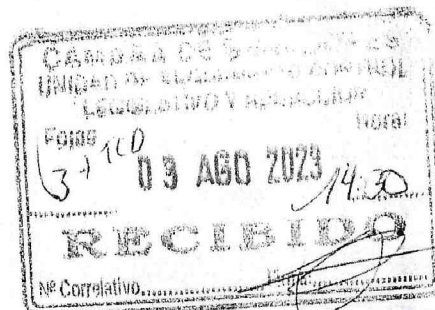 CAMARA DE
UNIDAD DE CONTROL
LEGISLATIVO Y
Fojas Hora:
3+1CD 03 AGO 2023 14:30
RECIBIDO
Nº Correlativo